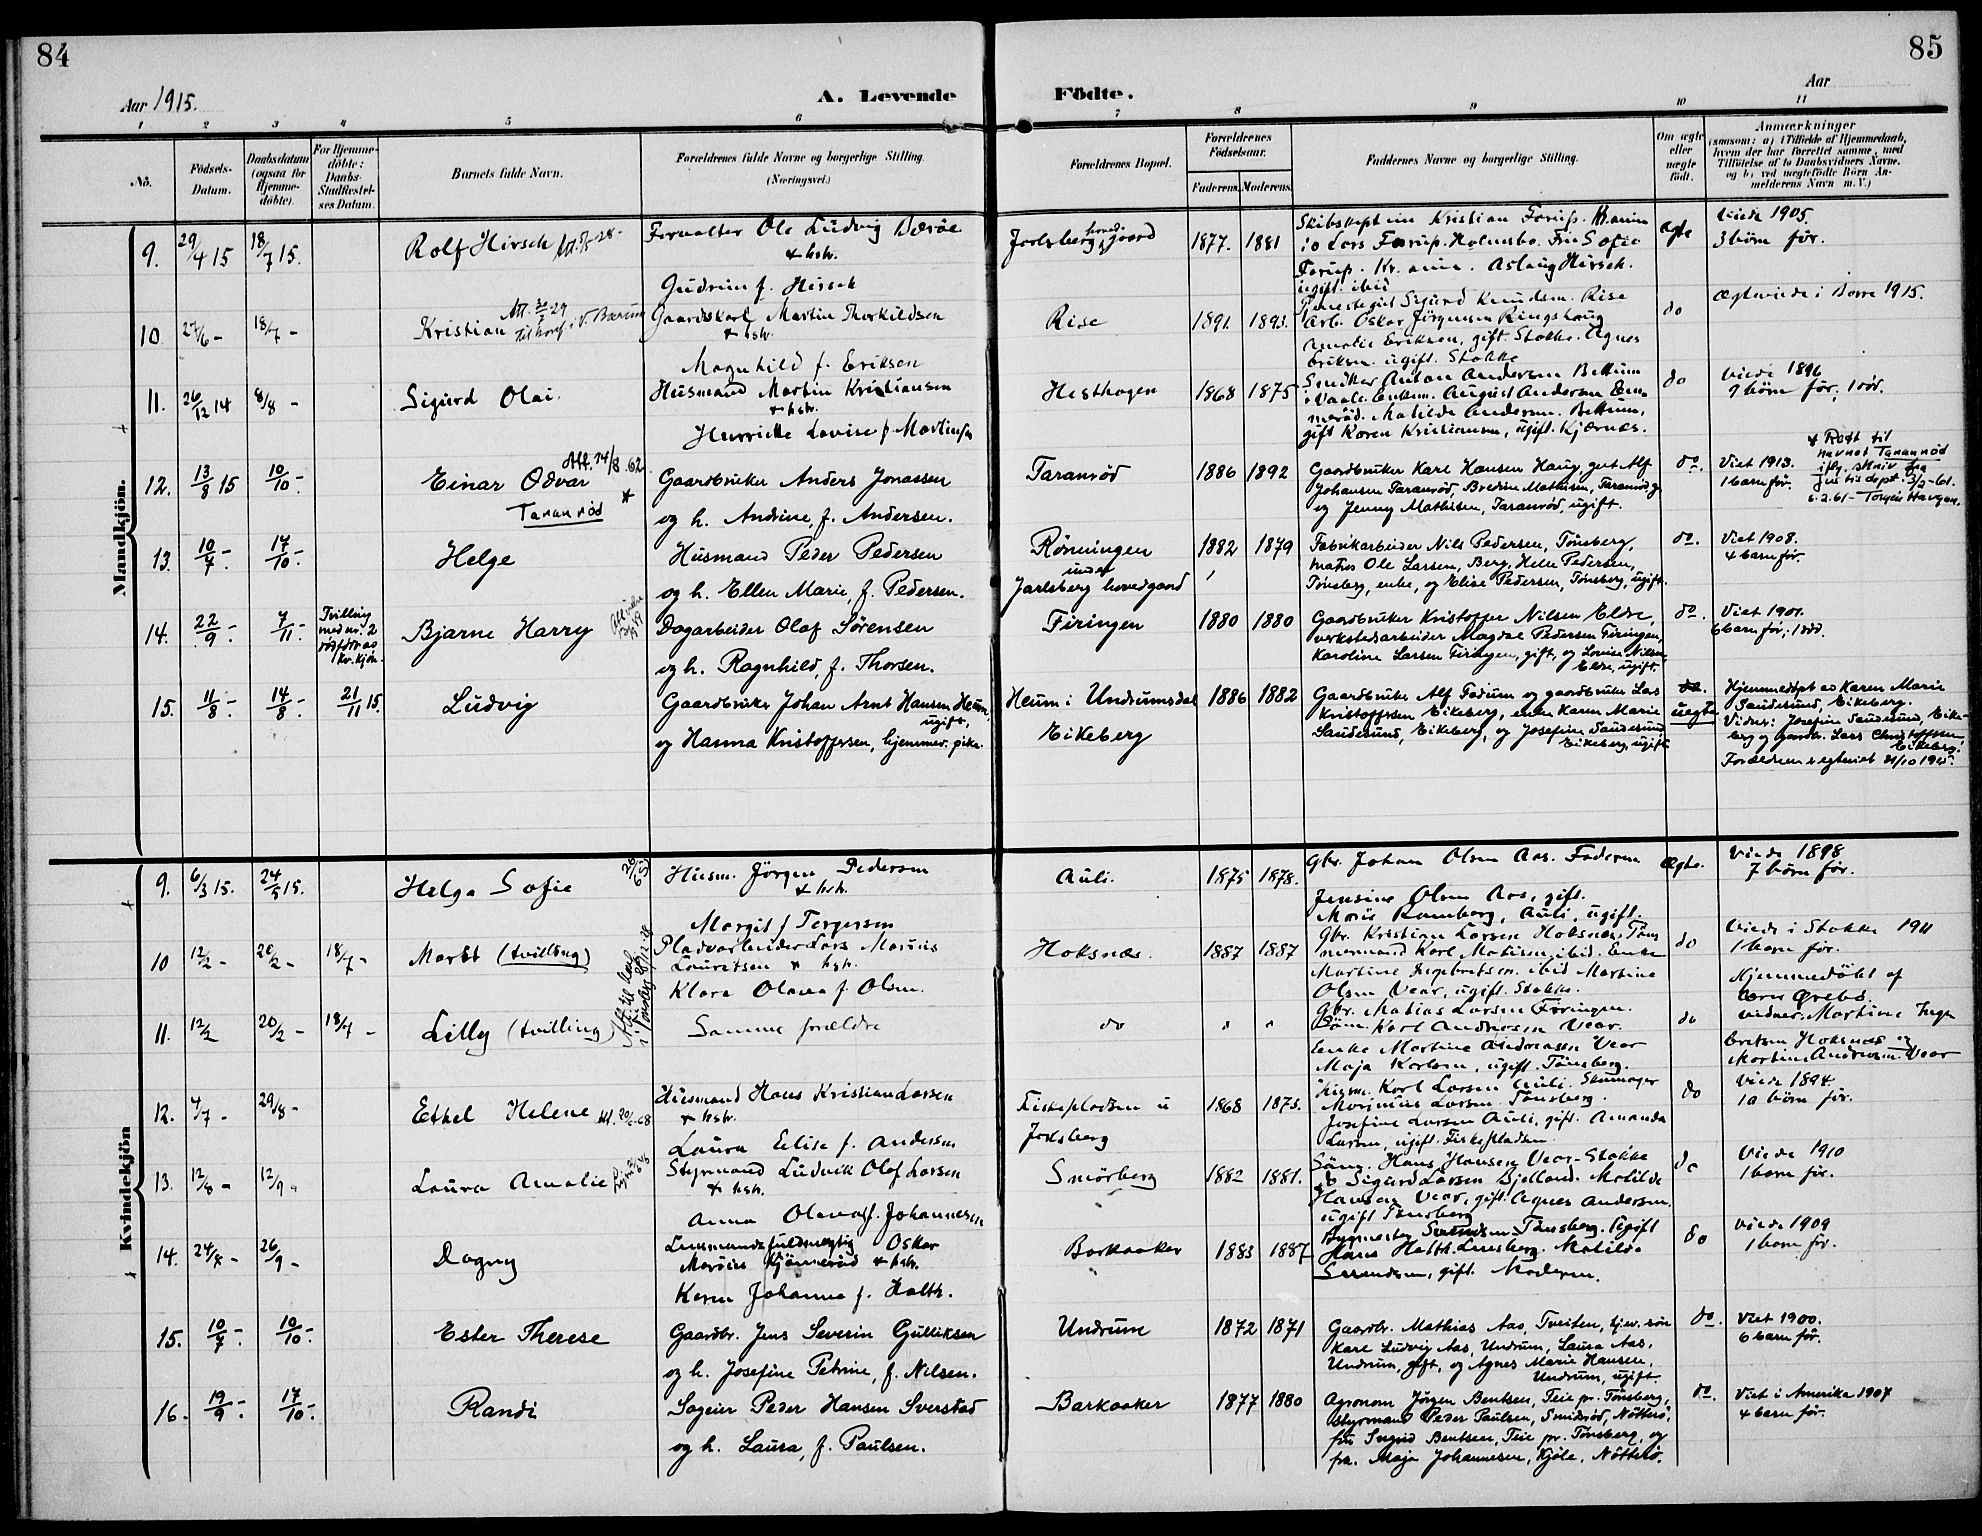 84
85
Aar 1915.
A. Levende
Födte.
Aar
1 2 3 4 5 6 7 8 9 10 11
No.
Födsels-
Datum.
Daabsdatum
(ogsaa for
Hjemme-
döbte).
For Hjemme-
döbte:
Daabs-
Stadfæstel-
ses Datum.
Barnets fulde Navn.
Forældrenes fulde Navne og borgerlige Stilling.
(Næringsvei.)
Forældrenes Bopæl.
Forældrenes
Födselsaar.
Faderens. Moderens.
Faddernes Navne og borgerlige Stilling.
Om ægte
eller
uægte
födt.
Anmærkninger
(saasom: a) i Tilfælde af Hjemmedaab,
hvem der har forrettet samme, med
Tilföielse af to Daabsvidners Navne.
og b) ved uægtefödte Börn An-
melderens Navn m. V.)
Mandkjön.
9. 29/4 15 18/7 15.
Rolf Hirsch
Forvalter Ole Ludvig Bærøe
& hstr.
Gudrun f. Hirsch
Jarlsberg hovedgaard
1877. 1881
Skibskaptein Kristian Forup. Kr.ania
do Lars Forup. Holmsbo. Fru Sofie
Forup. Kr.ania. Aslaug Hirsch.
ugift ibid
Ægte
Viede 1905.
3 börn før.
10 27/6 - 18/7 -
Kristian
Gaardskarl Martin Thorkildsen
& hstr.
Magnhild f. Eriksen
Rise
1891. 1893.
Tjenestegut Sigurd Knudsen. Rise
Arb. Oskar Jörgensen Ringshaug
Amalie Eriksen, gift. Stokke. Agnes
Eriksen. ugift. Stokke
do
Ægteviede i Borre 1915.
11. 26/12 14 8/8 -
Sigurd Olai.
Husmand Martin Kristiansen
& hstr.
Henriette Lovise f. Martinsen
Hesthagen
1868 1875
Snedker Anton Andersen Bettum
i Vaale. Enkem. August Andersen
Matilde Andersen. Bettum,
gift Karen Kristiansen, ugift. Kjærnæs.
do
Viede 1896
9 börn før, 1 död.
12. 13/8 15 10/10 -
Einar Odvar
Att. 14/8 . 62.
Tananröd *
Gaardbruker Anders Jonassen
og h. Andrine, f. Andersen.
Taranröd
1886 1892
Gaardbruker Karl Hansen Haug, gut Alf
Johansen Taranröd, Bredine Mathisen, Taranröd g
og Jenny Mathisen, Taranröd, ugift.
do.
Viet 1913.
1 barn før.
* Rett til
navnet Tananröd
iflg. skriv fra
Just is dept. 3/2 - 61.
6.2.61 - Torgeir Havgar.
13. 10/7 - 17/10 -
Helge
Husmand Peder Pedersen
og h. Ellen Marie, f. Pedersen.
Rönningen
under
Jarlsberg hovedgaard
1882 1879
Fabrikarbeider Nils Pedersen, Tönsberg,
matros Ole Larsen, Berg, Helene Pedersen,
Tönsberg, enke, og Elise Pedersen, Tönsberg, ugift.
do.
Viet 1908.
4 barn før.
14. 22/9 - 7/11 -
Tvilling
med nr. 2
dødfödte av
kv. kjön.
Bjarne Harry
Dagarbeider Olaf Sørensen
og h. Ragnhild, f. Thorsen.
Firingen
1880 1880
Gaardbruker Kristoffer Nilsen Eldre,
verkstedsarbeider Magdal Pedersen Firingen,
Karoline Larsen Firingen, gift, og Lovise Nilsen
Eldre, ugift.
do.
Viet 1901.
6 barn før; 1 död.
15. 11/8 - 14/8 - 21/11 15.
Ludvig
Gaardbruker Johan Arnt Hansen Heum
ugift,
og Hanna Kristoffersen, hjemmev. pike.
Heum i Undrumsdal
Eikeberg
1886 1882
Gaardbruker Alf Fadum og gaardbruker Lars
Kristoffersen Eikeberg, enke Karen Marie
Sandesund, Eikeberg, og Josefine Sandesund
Eikeberg, ugift
do.
uegte
Hjemmedöpt av Karen Marie
Sandesund, Eikeberg.
Vidner: Josefine Sandesund, Eike-
berg og gaardbr. Lars Christoffersen
Eikeberg.
Forældrene egteviet 31/10 1915.
Kvindekjön
9. 6/3 15. 24/5 15.
Helga Sofie
Husm. Jörgen Pedersen
& hstr.
Margit f Torgersen
Auli.
1875 1878.
Gbr. Johan Olsen Aas. Faderen
Jensine Olsen Aas, gift.
Marie Ramberg, Auli, ugift.
Ægte.
Viede 1898
7 börn før.
10 12/2 - 20/2 - 18/7 -
Marbt (tvilling)
Pladsarbeider Lars Marius
Lauritsen & hstr.
Klara Olava f. Olsen.
Hoksnæs.
1887 1887
Gbr. Kristian Larsen Hoksnæs. Töm-
mermand Karl Matisen ibid. Enke
Martine Ingebretsen. ibid Martine
Olsen Vear, ugift. Stokke.
do
Viede i Stokke 1911
1 barn før.
Hjemmedöbt af
Ørebæ.
11. 12/2 20/2 - 18/7 -
Lilly (tvilling)
Samme forældre
do " "
Gbr. Matias Larsen Föringen.
Karl Andreasen Vear.
Enke Martine Andreasen Vear
Maja Karlsen, ugift. Tönsberg.
do
vidner: Martine Inge-
bretsen Hoksnæs og
Martine Andreasen Vear
12. 4/7 - 29/8 -
Ethel Helene
Husmand Hans Kristian Larsen
& hstr.
Laura Elise f. Andersen
Fiskepladsen u
Jarlsberg
1868 1873.
Husm. Karl Larsen Auli. Skomager
Marinius Larsen. Tönsberg.
Josefine Larsen Auli, gift. Amanda
Larsen, ugift. Fiskepladsen.
do
Viede 1894.
10 börn før.
13. 12/8 - 12/9 -
Laura Amalie
Styrmand Ludvik Olaf Larsen
& hstr.
Anna Olava f. Johannesen
Smörberg
1882 1881.
Hans Hansen Vear - Stokke
do Sigurd Larsen Bjelland. Matilde
Hansen Vear, gift. Agnes Andersen.
ugift Tönsberg
do
Viede 1910
1 barn før.
14. 24/8 - 26/9 -
Dagny
Lensmandsfuldmægtig Oskar
Marius Kjönneröd & hstr.
Karen Johanne f. Holth.
Barkaaker
1883 1887
Bygmester Svendsen Tönsberg. Ugift
Hans Holth. Matilde
Svendsen, gift. Moderen.
do
Viede 1909
1 barn før.
15. 10/7 - 10/10 -
Ester Therese
Gaardbr. Jens Severin Gulliksen
og h. Josefine Petrine, f. Nilsen.
Undrum
1872 1871
Gaardbr. Mathias Aas, Tveiten, hjv. sön
Karl Ludvig Aas, Undrum, Laura Aas,
Undrum, gift, og Agnes Marie Hansen,
Undrum, ugift.
do.
Viet 1900.
6 barn før.
16. 19/9 - 17/10 -
Randi
Sageier Peder Hansen Sverstad
og h. Laura, f. Paulsen.
Barkaaker
1877 1880
Agronom Jörgen Bentsen, Teie pr. Tönsberg,
styrmand Peder Paulsen, Smidsröd, Nötterö,
fru Ingrid Bentsen, Teie pr. Tönsberg, og
frk. Maja Johannesen, Kjöle, Nötterö.
do.
Viet i Amerika 1907
4 barn før.